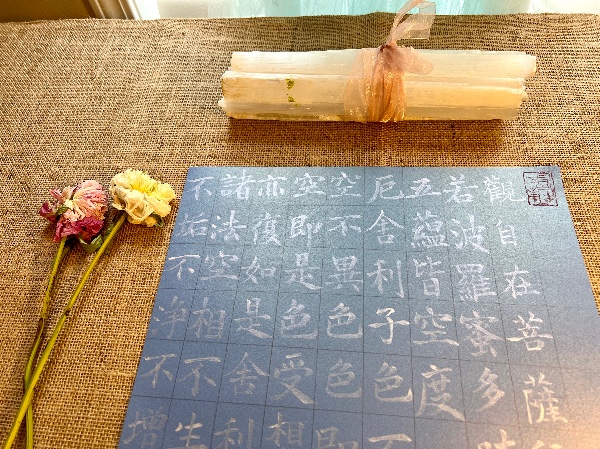 觀自在菩薩
若波羅蜜多時
五蘊皆空度
厄舍利子色不
空不異色色即
空即是色受相
亦復如是舍利
諸法空相不生
不垢不淨不增